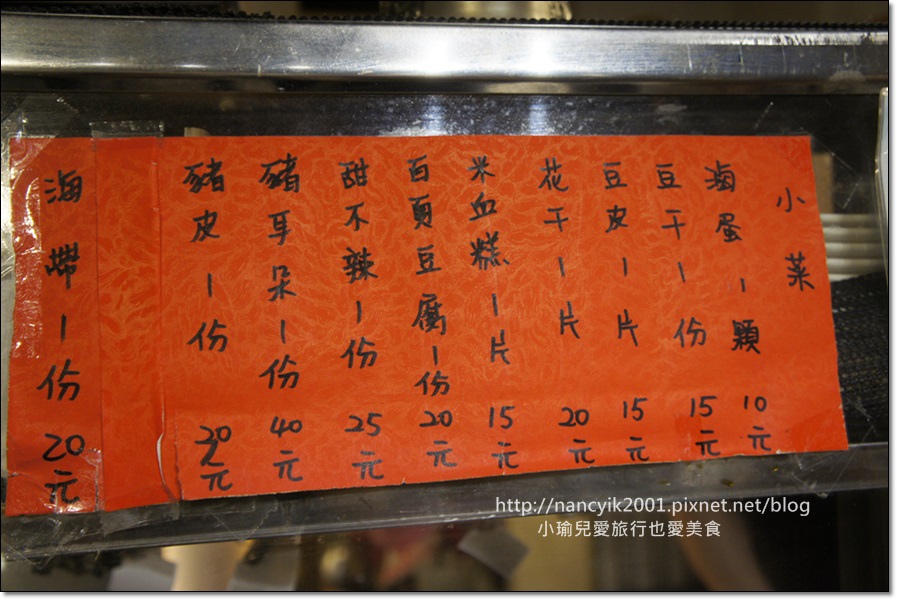 小菜
滷蛋1顆10元
豆干1份15元
豆皮1片15元
花干1片20元
米血糕1片15元
百頁豆腐1份20元
甜不辣1份25元
豬耳朵1份40元
豬皮1份30元
海帶1份20元
http://nancyik2001.pixnet.net/blog
小瑜兒愛旅行也愛美食